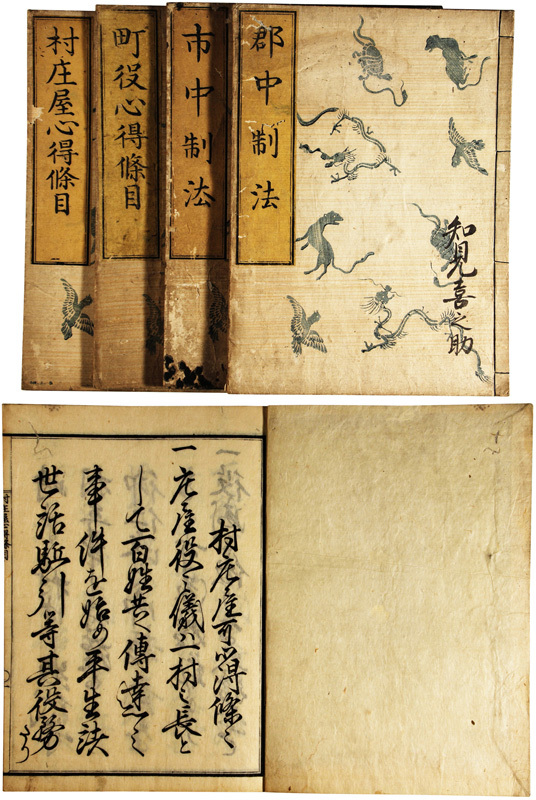 知見喜之助
郡中制法
市中制法
町役心得條目
村庄屋心得條目
村庄屋可心得條々
一庄屋役之儀ハ一村之長と
して百姓共へ傳達之
事件を始め平生諸
世話駈引等其役務
村庄屋心得條目